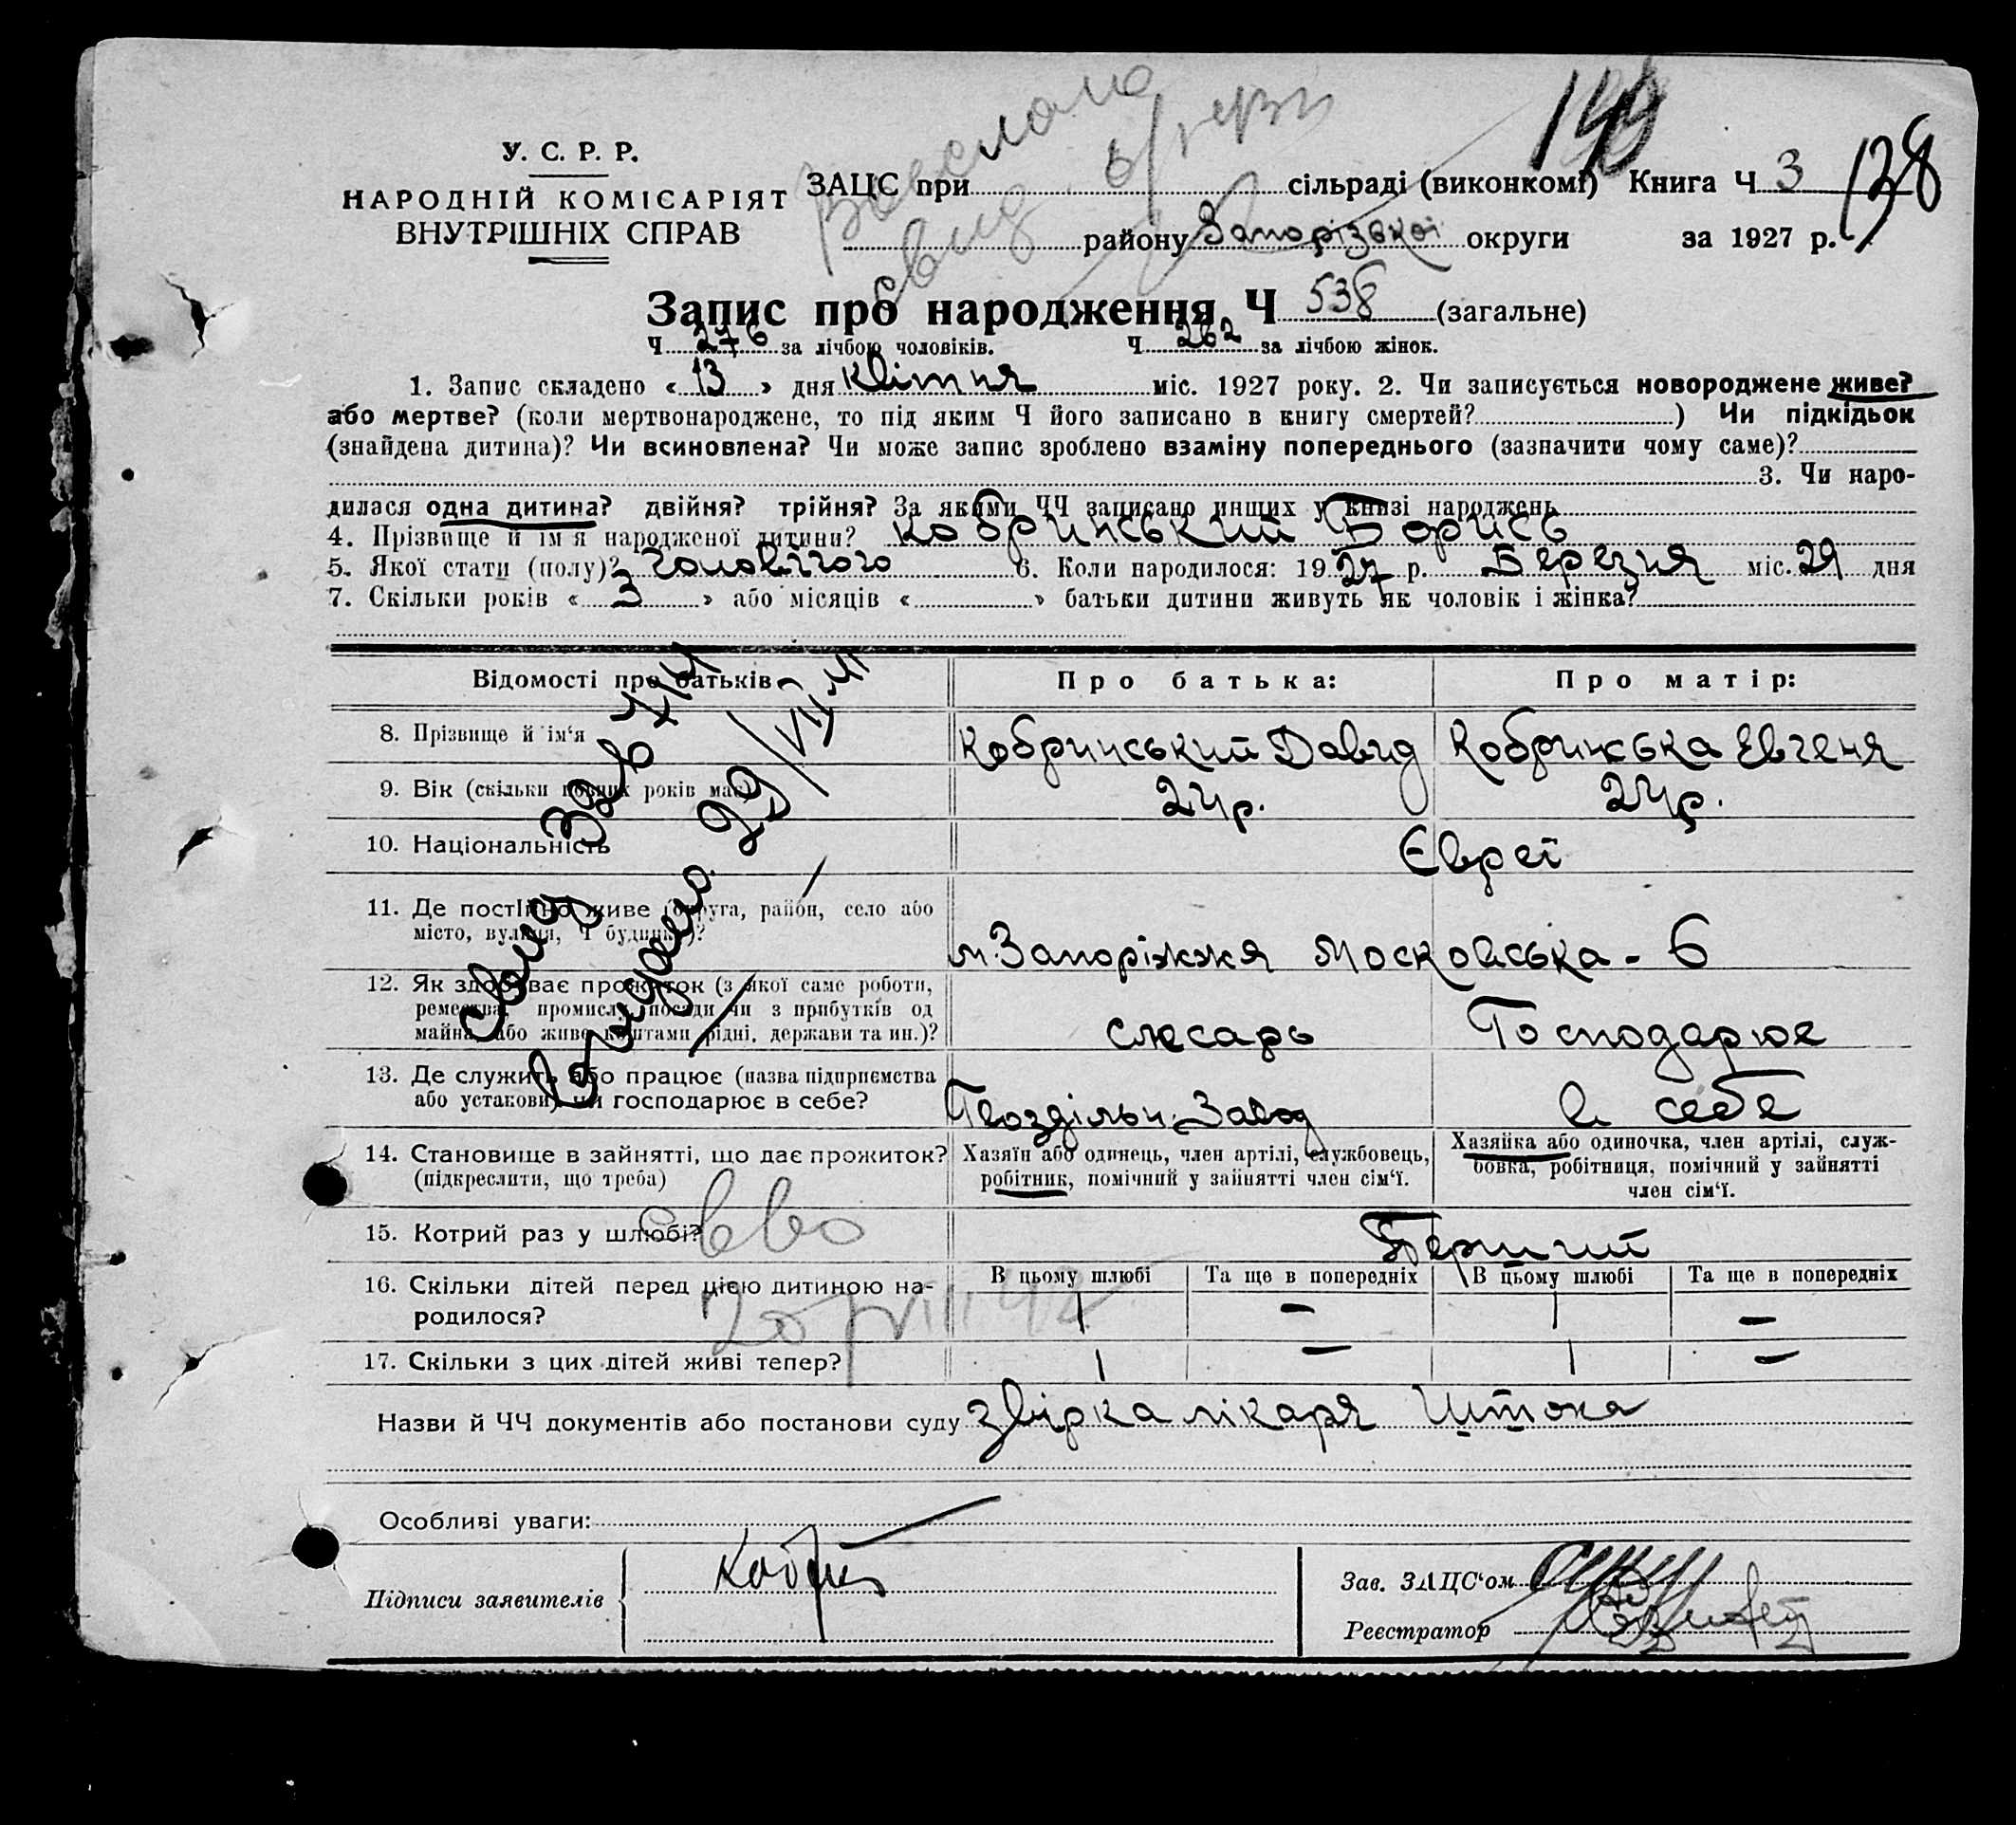 У. С. Р. Р.
НАРОДНІЙ КОМІСАРІЯТ
ВНУТРІШНІХ СПРАВ
ЗАЦС при сільраді (виконкомі) Книга Ч 3
138
району Запорізької округи за 1927 р.
Запис про народження Ч 538 (загальне)
Ч 276 за лічбою чоловіків. Ч 262 за лічбою жінок.
1. Запис складено «13» дня квітня міс. 1927 року. 2. Чи записується новороджене живе?
або мертве? (коли мертвонароджене, то під яким Ч його записано в книгу смертей?) Чи підкідьок
(знайдена дитина)? Чи всиновлена? Чи може запис зроблено взаміну попереднього (зазначити чому саме)?
3. Чи наро-
дилася одна дитина? двійня? трійня? За якими ЧЧ записано инших у книзі народжень
4. Прізвище й ім'я народженої дитини? Кобринський Борись
5. Якої стати (полу)? Чоловічого 6. Коли народилося: 1927 р. Березня міс. 29 дня
7. Скільки років «3» або місяців « » батьки дитини живуть як чоловік і жінка?
Відомості про батьків Про батька: Про матір:
8. Прізвище й ім'я Кобринський Давид Кобринська Евгеня
9. Вік (скільки повних років має) 24р. 24р.
10. Національність Євреї
11. Де постійно живе (округа, район, село або
місто, вулиця, Ч будинку)? м. Запоріжжя Московська - 6
12. Як здобуває прожиток (з якої саме роботи,
ремества, промислу, посади чи з прибутків од
майна, або живе коштами рідні, держави та ин.)? слюсарь Господарює
13. Де служить або працює (назва підприємства
або установи), чи господарює в себе? Гвоздільн. Завод в себе
14. Становище в зайнятті, що дає прожиток?
(підкреслити, що треба)
Хазяїн або одинець, член артілі, службовець,
робітник, помічний у зайнятті член сім'ї.
Хазяйка або одиночка, член артілі, служ-
бовка, робітниця, помічний у зайнятті
член сім'ї.
15. Котрий раз у шлюбі? Перший
16. Скільки дітей перед цією дитиною на-
родилося?
В цьому шлюбі Та ще в попередніх В цьому шлюбі Та ще в попередніх
1 — 1 —
17. Скільки з цих дітей живі тепер? 1 — 1 —
Назви й ЧЧ документів або постанови суду звірка лікаря Штока
Особливі уваги:
Підписи заявителів
Зав. ЗАЦС'ом
Реєстратор